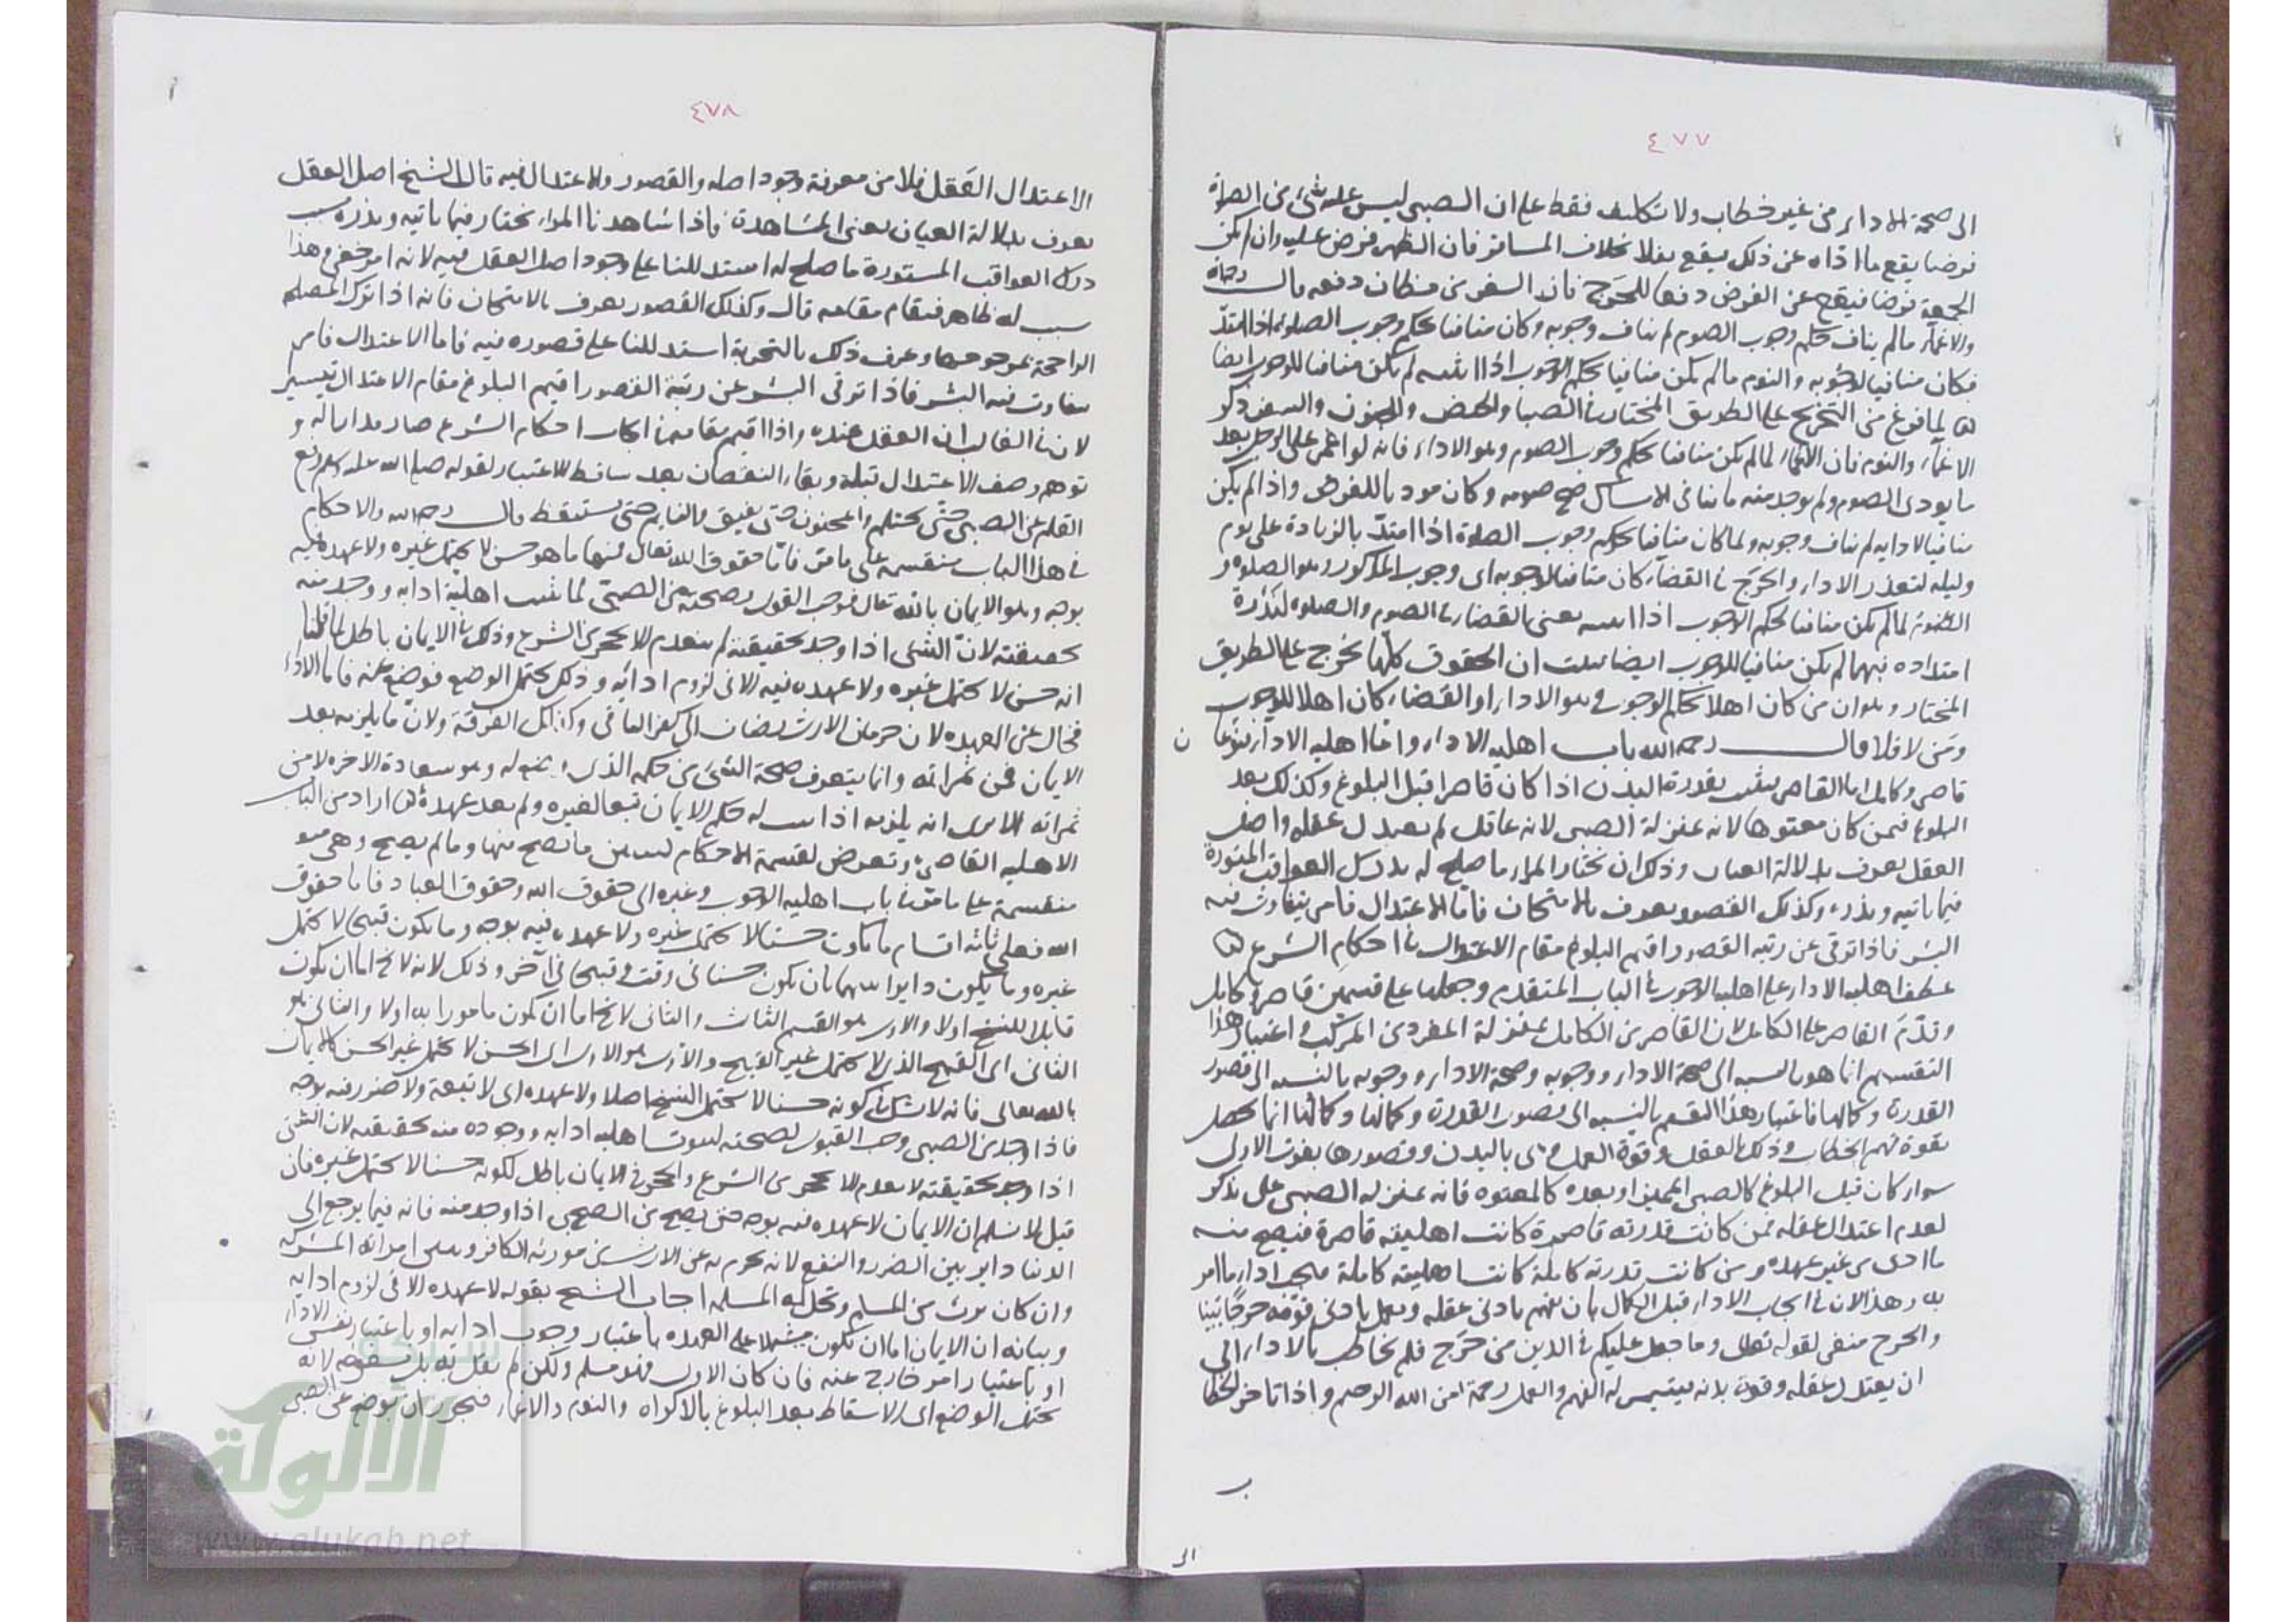 ٤٧٧
الى صحة الاداء من غير خطاب ولا تكليف فقط على ان الصبي ليس عليه شئ من الصلوة
فرضا يقع ما اداه عن ذلك فيقع نفلا بخلاف المسافر فان الظهر فرض عليه وان لم تكن
الجمعة فرضا فيقع عن الفرض دفعا للحرج فان السفر من مظان دفعه قال رحمه الله
والاغماء ما لم يناف حكم وجوب الصوم لم يناف وجوبه وكان منافيا لحكم وجوب الصلوة اذا امتد
فكان منافيا لوجوبه والنوم ما لم يكن منافيا لحكم الوجوب اذا انتبه لم يكن منافيا للوجوب ايضا
لما فرغ من التخريج على الطريق المختار في الصبا والحيض والجنون والسفر ذكر
الاغماء والنوم فان الاغماء لما لم يكن منافيا لحكم وجوب الصوم وهو الاداء فانه لو اغمى على الرجل بعد
ما يودى الصوم ولم يوجد منه ما ينافي الامساك صح صومه وكان موديا للفرض واذا لم يكن
منافيا لادايه لم يناف وجوبه ولما كان منافيا لحكم وجوب الصلوة اذا امتد بالزيادة على يوم
وليلة لتعذر الاداء والحرج في القضاء كان منافيا لوجوبه اى وجوب المذكور وهو الصلوة و
النوم لما لم يكن منافيا لحكم الوجوب اذا انتبه يعنى بالقضاء في الصوم والصلوة لندرة
امتداده فيهما لم يكن منافيا للوجوب ايضا فثبت ان الحقوق كلها تخرج على الطريق
المختار وهو ان من كان اهلا لحكم الوجوب وهو الاداء او القضاء كان اهلا للوجوب
ومن لا فلا قال رحمه الله باب اهلية الاداء واما اهلية الاداء فنوعان
قاصر وكامل اما القاصر فيثبت بقدرة البدن اذا كان قاصرا قبل البلوغ وكذلك بعد
البلوغ فيمن كان معتوها لانه بمنزلة الصبي لانه عاقل لم يعتدل عقله واصل
العقل يعرف بدلالة العيان وذلك ان يختار المرء ما صلح له بدرك العواقب المستورة
فيما ياتيه ويذره وكذلك القصور يعرف بالامتحان فاما الاعتدال فامر يتفاوت فيه
البشر فاذا ترقى عن رتبة القصور اقيم البلوغ مقام الاعتدال في احكام الشرع
عطف اهلية الاداء على اهلية الوجوب في الباب المتقدم وجعلها على قسمين قاصر وكامل
وقدم القاصر على الكامل لان القاصر من الكامل بمنزلة المفرد من المركب واعتبار هذا
التقسيم انما هو بالنسبة الى صحة الاداء ووجوبه وصحة الاداء ووجوبه بالنسبة الى قصور
القدرة وكمالها فاعتبار هذا التقسيم بالنسبة الى قصور القدرة وكمالها وكمالها انما يحصل
بقوة فهم الخطاب وذلك بالعقل وقوة العمل وهى بالبدن وقصورها بفوت الاول
سواء كان قبل البلوغ كالصبي المميز او بعده كالمعتوه فانه بمنزلة الصبي على ما ذكر
لعدم اعتدال عقله فمن كانت قدرته قاصرة كانت اهليته قاصرة فيصح منه
ما ادى من غير عهده ومن كانت قدرته كاملة كانت اهليته كاملة فيجب اداء ما امر
به وهذا لان في ايجاب الاداء قبل الكمال بان يفهم بادنى عقله ويعمل بادنى قوته حرجا بينا
والحرج منفى لقوله تعالى وما جعل عليكم في الدين من حرج فلم يخاطب بالاداء الى
ان يعتدل عقله وقوة بدنه فيتيسر له الفهم والعمل رحمة من الله الرحيم واذا تاخر الخطاب
٤٧٨
الاعتدال العقل فلا من معرفة وجود اصله والقصور والاعتدال فيه قال الشيخ اصل العقل
يعرف بدلالة العيان يعنى المشاهدة فاذا شاهدنا المرء يختار فيما ياتيه ويذره بسبب
درك العواقب المستورة ما صلح له استدللنا على وجود اصل العقل فيه لانه امر خفى وهذا
سبب له ظاهر فيقام مقامه قال وكذلك القصور يعرف بالامتحان فانه اذا ترك المصلحة
الراجحة بمرجوحها وعرف ذلك بالتجربة استدللنا على قصوره فيه فاما الاعتدال فامر
يتفاوت فيه البشر فاذا ترقى البشر عن رتبة القصور اقيم البلوغ مقام الاعتدال تيسيرا
لان في الغالب ان العقل عنده واذا اقيم مقامه في ايجاب احكام الشرع صار مدارا له و
توهم وصف الاعتدال قبله وبقاء النقصان بعد ساقط الاعتبار لقوله صلى الله عليه وسلم رفع
القلم عن الصبي حتى يحتلم والمجنون حتى يفيق والنايم حتى يستيقظ قال رحمه الله والاحكام
في هذا الباب منقسمة على ما مر فاما حقوق الله تعالى فمنها ما هو حسن لا يحتمل غيره ولا عهده فيه
بوجه وهو الايمان بالله تعالى فوجب القول بصحته من الصبي لما ثبت اهلية ادايه ووجد منه
بحقيقته لان الشئ اذا وجد بحقيقته لم ينعدم الا بحجر من الشرع وذلك في الايمان باطل لما قلنا
انه حسن لا يحتمل غيره ولا عهده فيه الا في لزوم ادائه وذلك يحتمل الوضع فوضع عنه فاما الاداء
فخال عن العهده لان حرمان الارث يضاف الى كفر الباقى وكذلك الفرقة ولان ما يلزمه بعد
الايمان فمن ثمراته وانما يتعرف صحة الشئ من حكمه الذى وضع له وهو سعادة الاخره لا من
ثمراته الا ترى انه يلزمه اذا ثبت له حكم الايمان تبعا لغيره ولم يعد عهدة اراد من الباب
الاهلية القاصرة وتعرض لقسمة الاحكام ليبين ما تصح منها وما لم يصح وهى
منقسمة على ما مر في باب اهلية الوجوب وغيره الى حقوق الله وحقوق العباد فاما حقوق
الله فعلى ثلثة اقسام ما يكون حسنا لا يحتمل غيره ولا عهده فيه بوجه وما يكون قبيحا لا يحتمل
غيره وما يكون دايرا بينهما بان يكون حسنا في وقت وقبيحا في آخر وذلك لانه لا يخ اما ان يكون
قابلا للنسخ اولا والاول هو القسم الثالث والثانى لا يخ اما ان يكون مامورا به اولا والثانى هو
الثانى اى القبيح الذى لا يحتمل غير القبيح والاول هو الاول اى الحسن لا يحتمل غير الحسن كالايمان
بالله تعالى فانه لا شك في كونه حسنا لا يحتمل النسخ اصلا ولا عهده اى لا تبعة ولا ضرر فيه بوجه
فاذا وجد من الصبي وجب القبول لصحته لثبوت اهلية ادايه ووجوده منه بحقيقته لان الشئ
اذا وجد بحقيقته لا ينعدم الا بحجر من الشرع والحجر في الايمان باطل لكونه حسنا لا يحتمل غيره فان
قيل لا نسلم ان الايمان لا عهده فيه بوجه حتى يصح من الصبي اذا وجد منه فانه فيما يرجع الى
الدنيا داير بين الضرر والنفع لانه يحرم به عن الارث من مورثه الكافر وتبين امراته المشركة
وان كان يرث من المسلم وتحل له المسلمة اجاب الشيخ بقوله لا عهده الا في لزوم ادايه
وبيانه ان الايمان اما ان يكون مشتملا على العهده باعتبار وجوب ادايه او باعتبار نفس الاداء
او باعتبار امر خارج عنه فان كان الاول فهو مسلم ولكن لم نقل به بل بسقوطه لانه
يحتمل الوضع اى الاسقاط بعد البلوغ بالاكراه والنوم والاغماء فيجوز ان يوضع عن الصبي
الألوكة
www.alukah.net